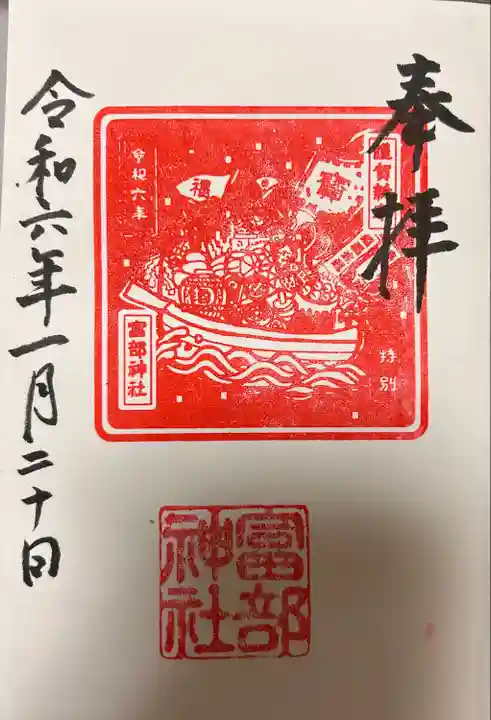 奉拝
謹賀
福
令和六年
特別
富部神社
富部
神社
令和六年一月二十日